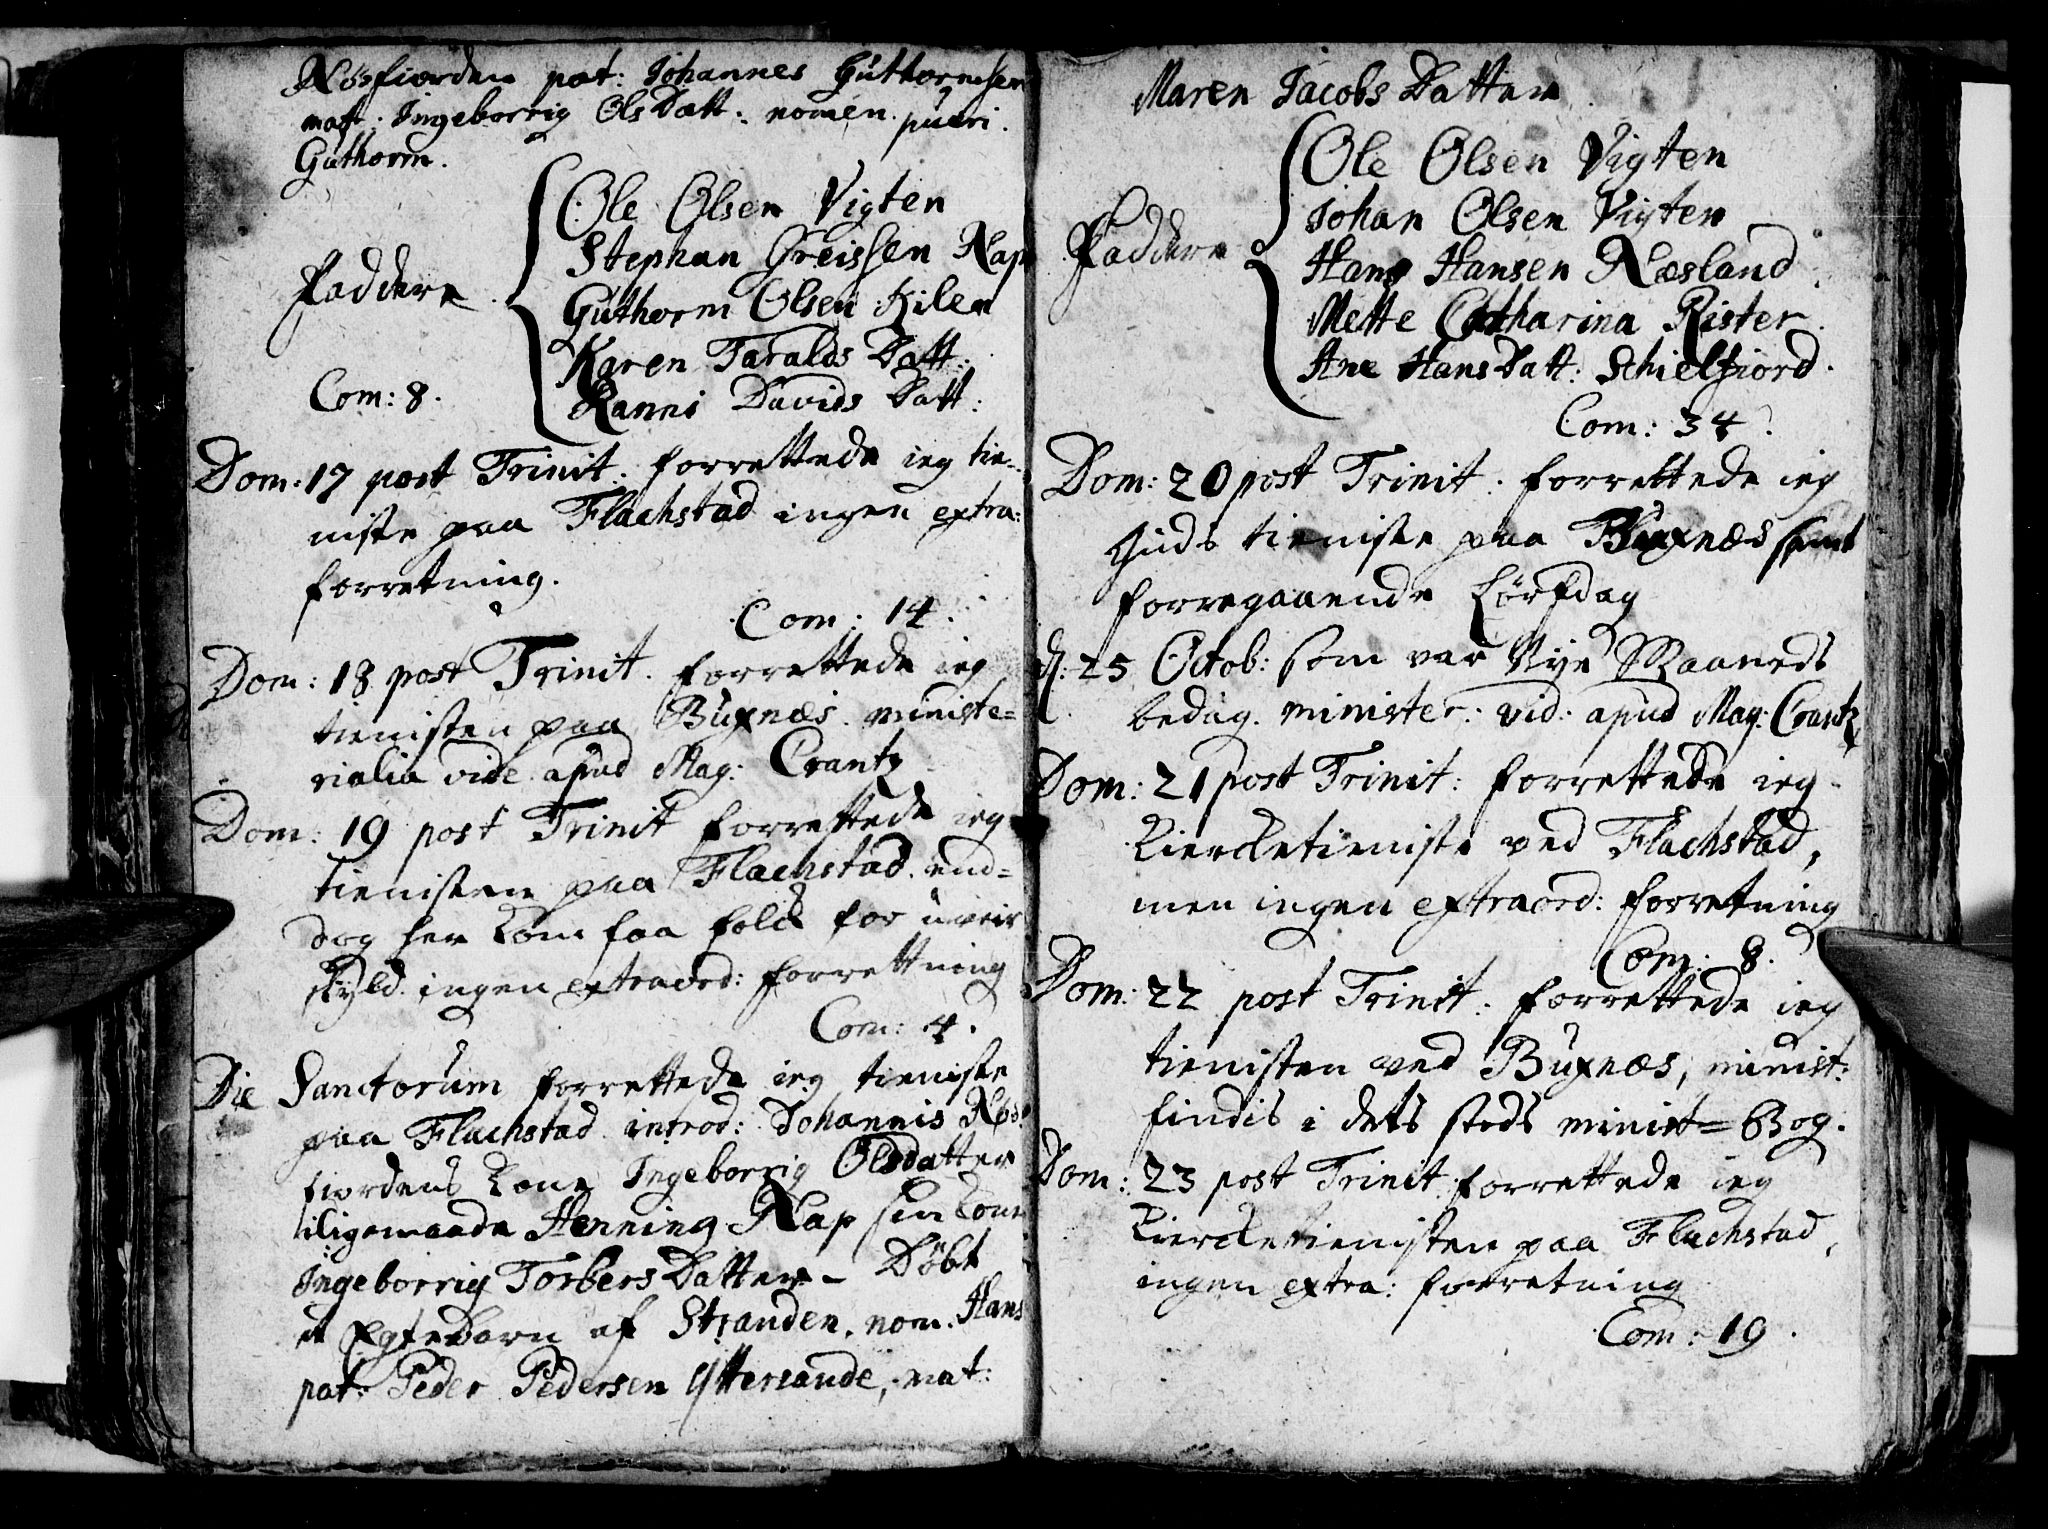 Nøsfiorden pat: Johannes Guthormsen
mat: Ingeborrig Ols Datt: nomen pueri
Guthorm.
Faddere
Ole Olsen Vigten
Stephan Greissen Nap
Guthorm Olsen Kilen
Karen Taralds Datt:
Ranni Davids Datt:
Com: 8.
Dom: 17 post Trinit. forrettede ieg tie-
niste paa Flachstad ingen extra:
forretning.
Com: 14.
Dom: 18 post Trinit. forrettede ieg
tienisten paa Buxnæs. ministe=
rialia vide apud Mag: Crantz
Dom: 19 post Trinit forrettede ieg
tienisten paa Flachstad. end=
dog her kom faa folck for uveir
skyld. ingen extraord: forrettning
Com: 4.
Die Sanctorum forrettede ieg tieniste
paa Flachstad introd: Johannis Nøs-
fiordens kone Ingeborrig Olsdatter
iligemaade Henning Nap sin kone
Ingeborrig Torbers Datter - Døbt
et Egtebarn af Stranden. nom. Hans
pat: Peder Pedersen Yttersande, mat:
Maren Jacobs Datter
Faddere
Ole Olsen Vigten
Johan Olsen Vigten
Hans Hansen Næsland
Mette Catharina Rister.
Ane Hans Datt: Schielfiord.
Com: 34.
Dom: 20 post Trinit. forrettede ieg
Guds tieniste paa Buxnæs samt
forregaaende Lørsdag
d: 25 Octob: som var Nye Maaneds
bedag. minister: vid: apud Mag: Crantz
Dom: 21 post Trinit: forrettede ieg
kiercketieniste ved Flachstad,
men ingen extraord: forretning
Com: 8.
Dom: 22 post Trinit. forrettede ieg
tienisten ved Buxnæs, minist:
findis i dets steds minist= Bog.
Dom: 23 post Trinit forrettede ieg
kiercketienisten paa Flachstad,
ingen extra: forretning
Com: 19.